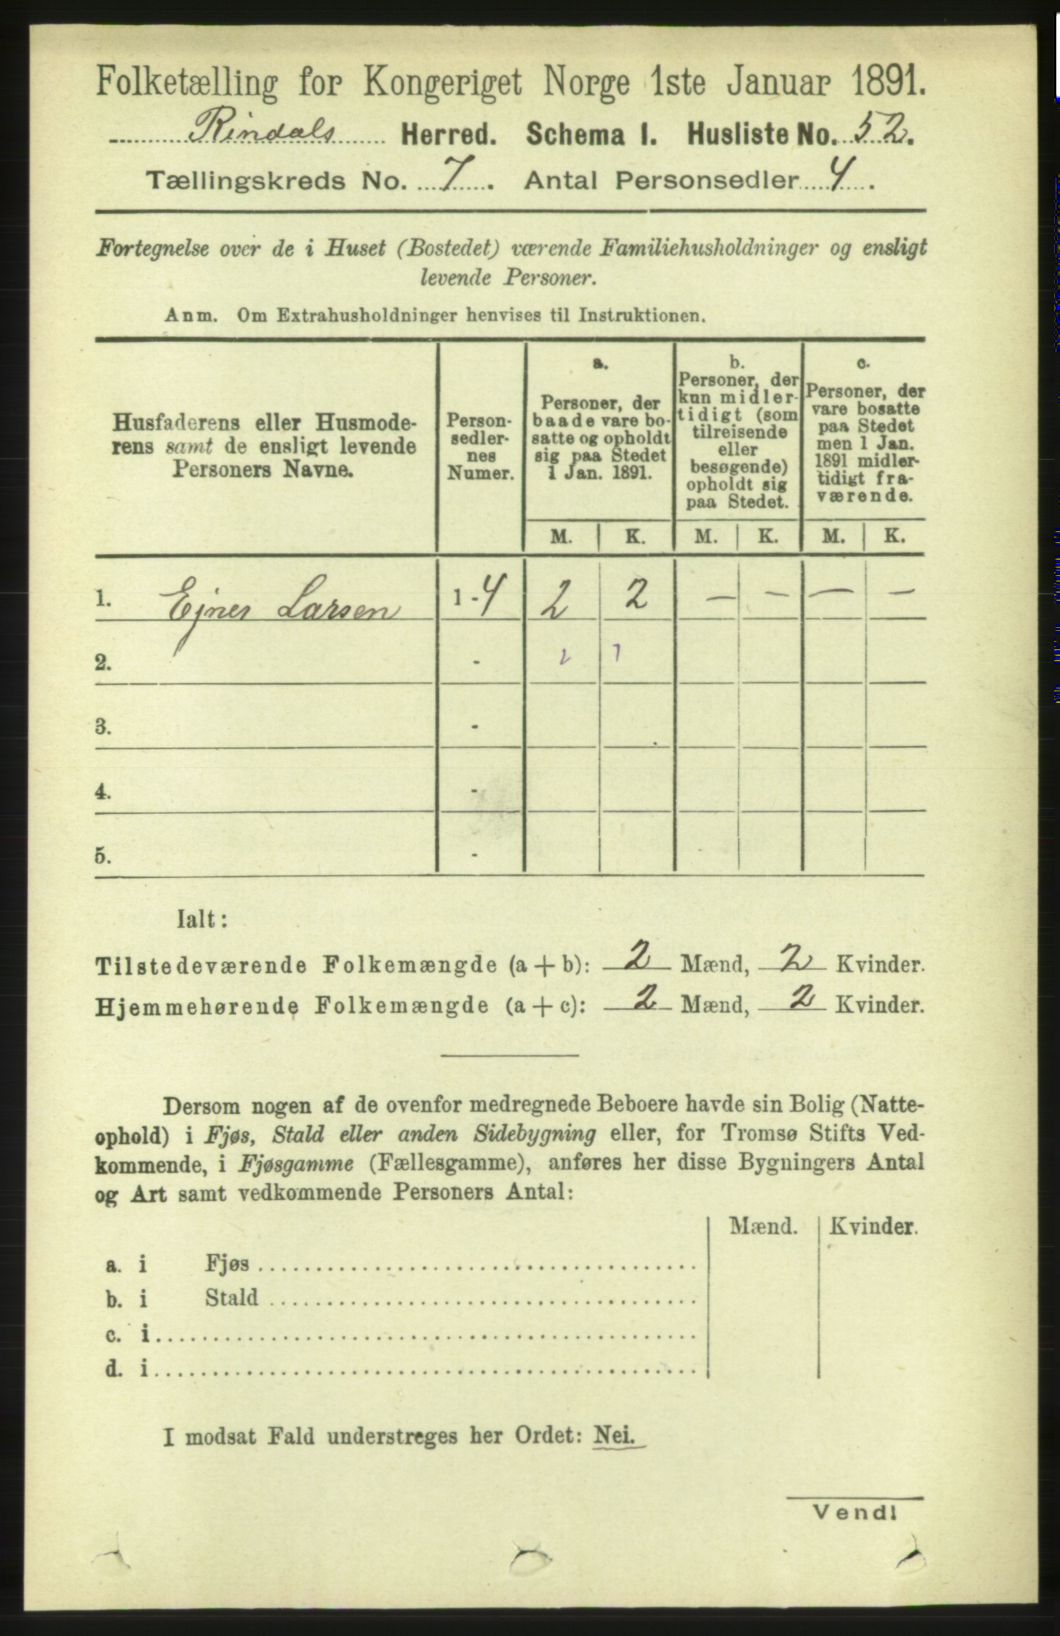 Folketælling for Kongeriget Norge 1ste Januar 1891.
Rindals Herred. Schema I. Husliste No. 52.
Tællingskreds No. 7. Antal Personsedler 4.
Fortegnelse over de i Huset (Bostedet) værende Familiehusholdninger og ensligt
levende Personer.
Anm. Om Extrahusholdninger henvises til Instruktionen.
Husfaderens eller Husmode-
rens samt de ensligt levende
Personers Navne.
Person-
sedler-
nes
Numer.
a.
Personer, der
baade vare bo-
satte og opholdt
sig paa Stedet
1 Jan. 1891.
b.
Personer, der
kun midler-
tidigt (som
tilreisende
eller
besøgende)
opholdt sig
paa Stedet.
c.
Personer, der
vare bosatte
paa Stedet
men 1 Jan.
1891 midler-
tidigt fra-
værende.
M. K. M. K. M. K.
1. Ejner Larsen 1-4 2 2 — — — —
2. - 2 1
3. -
4. -
5. -
Ialt:
Tilstedeværende Folkemængde (a + b): 2 Mænd, 2 Kvinder.
Hjemmehørende Folkemængde (a + c): 2 Mænd, 2 Kvinder.
Dersom nogen af de ovenfor medregnede Beboere havde sin Bolig (Natte-
ophold) i Fjøs, Stald eller anden Sidebygning eller, for Tromsø Stifts Ved-
kommende, i Fjøsgamme (Fællesgamme), anføres her disse Bygningers Antal
og Art samt vedkommende Personers Antal:
Mænd. Kvinder.
a. i Fjøs
b. i Stald
c. i
d. i
I modsat Fald understreges her Ordet: Nei.
Vend!